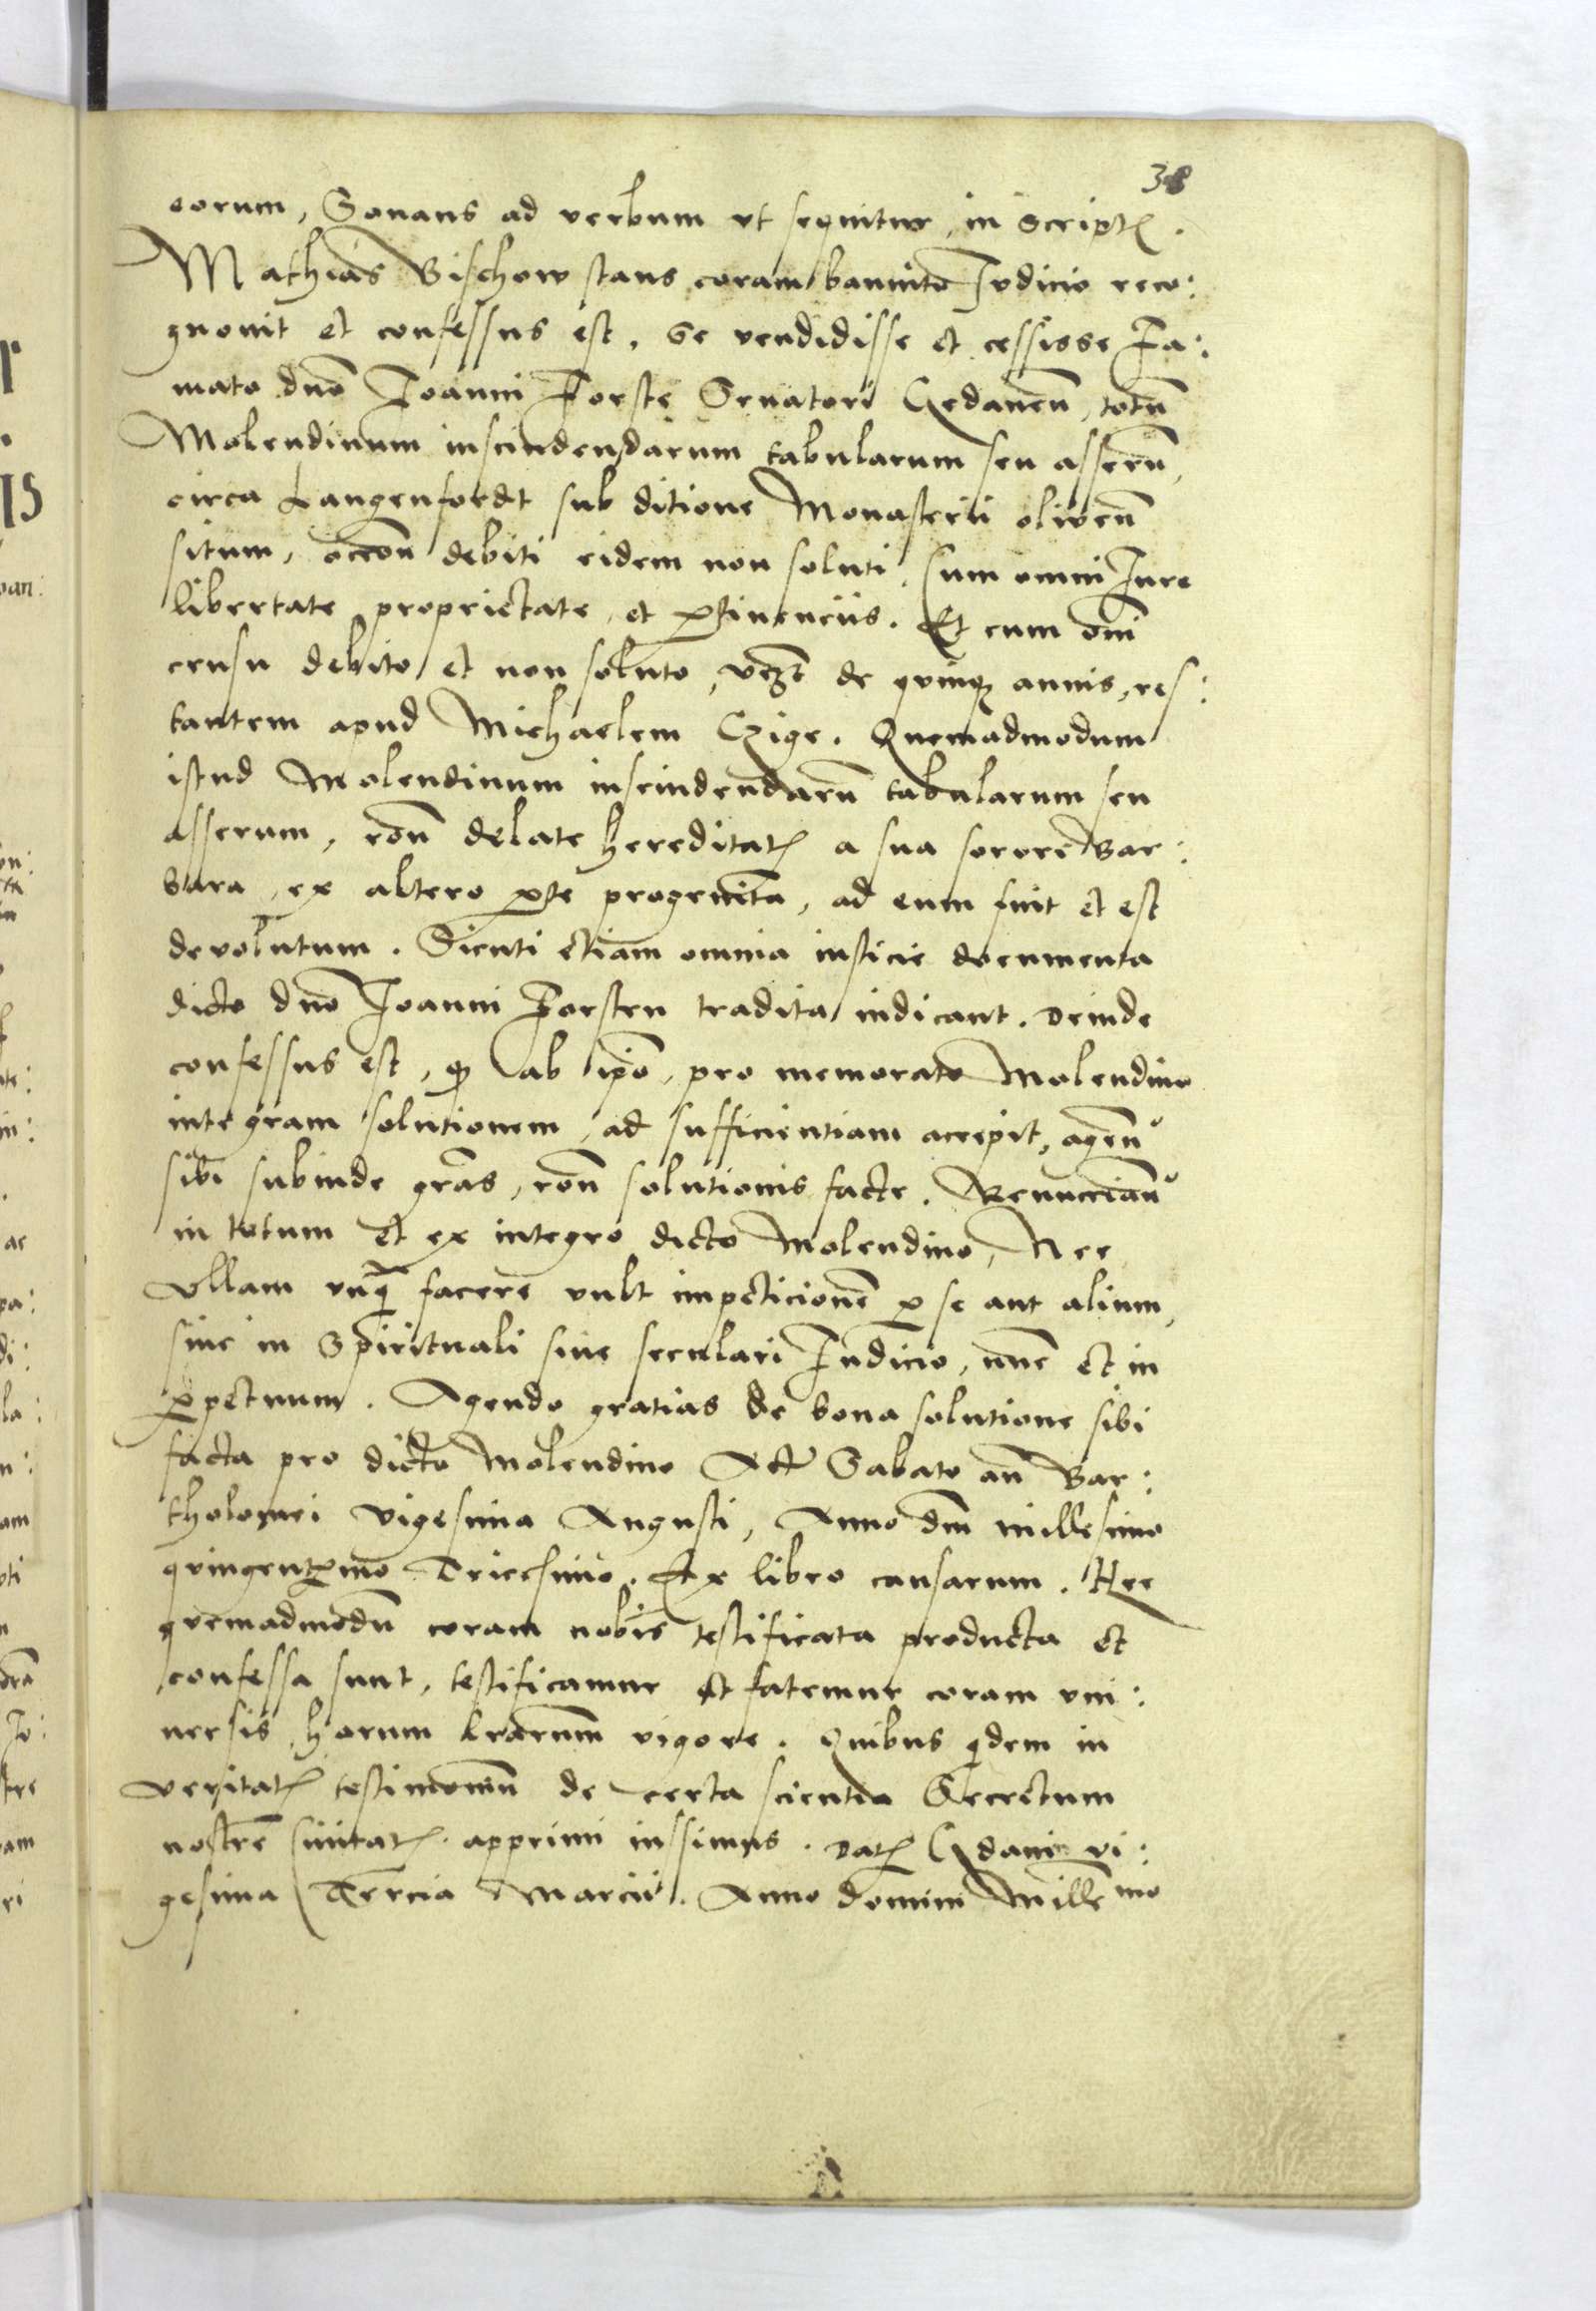 38
eorum, Sonans ad verbum vt sequitur, in Script.
Mathias Bischow stans coram bannito Judicio reco:
gnouit et confessus est, se vendidisse et cessisse Fa:
mato dno Joanni Forste Senatori Gedanen, totu
Molendinum inscindendarum tabularum seu asseru,
circa Langenfordt sub ditione Monasterii oliuen
situm, occon debiti eidem non soluti, Cum omni Jure
libertate proprietate, et ptinenciis. Et cum omi
censu debito et non soluto, vczt de quinq annis, res:
tantem apud Michaelem Czige. Quemadmodum
istud Molendinum inscindendaru tabularum seu
asserum, ron delate hereditat a sua sorore Bar:
bara, ex altero pte progenita, ad eum fuit et est
deuolutum. Sicuti etiam omnia iusticie documenta
dicto dno Joanni Forsten tradita indicant. Deinde
confessus est, q ab ipo, pro memorato Molendino
integram solutionem, ad sufficientiam accepit, agen
sibi subinde gras, ron solutionis facte. Renuncian
in totum et ex integro dicto Molendino, Nec
Vllam vnq facere vult impeticione p se aut alium,
siue in Spirituali siue seculari Judicio, nunc et in
ppetuum. Agendo gratias de bona solutione sibi
facta pro dicto Molendino Act Sabato an Bar:
tholomei vigesima Augusti, Anno dni millesimo
quingentmo Tricesimo. Ex libro causarum. Hec
quemadmodu coram nobis testificata producta et
confessa sunt, testificamur et fatemur coram vni:
uersis, harum lrarum vigore. Quibus qdem in
veritat testimoniu de certa scientia Secretum
nostre Ciuitat. apprimi iussimus. Dat Gdani vi:
gesima Tercia Marcii. Anno domini Mille mo